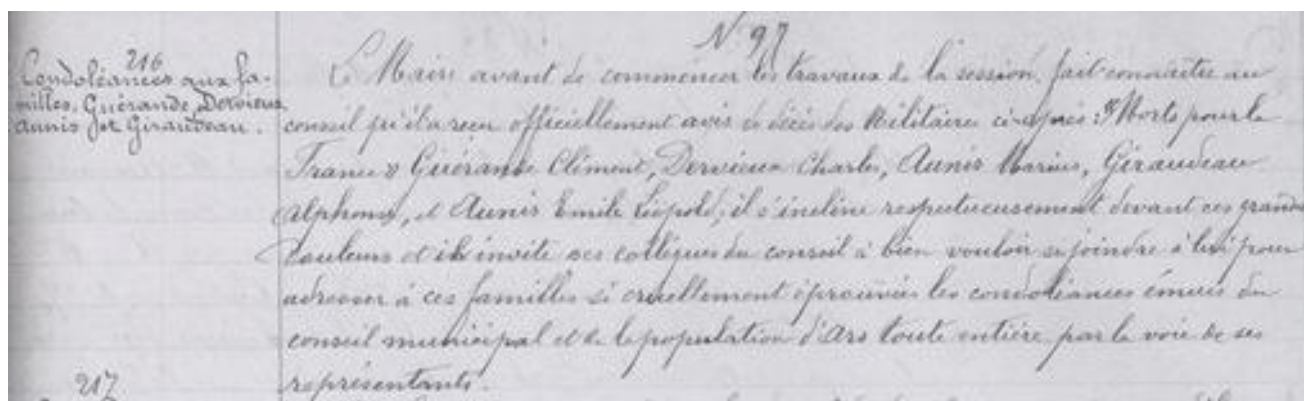 N° 97
216
Condoléances aux fa-
milles Guérande, Dervieux
Aunis et Giraudeau.
Le Maire avant de commencer les travaux de la session, fait connaitre au
conseil qu'il a reçu officiellement avis de décès des Militaires ci-après "Morts pour la
France" Guérande Clément, Dervieux Charles, Aunis Marius, Giraudeau
Alphonse, et Aunis Emile Léopold; il s'incline respectueusement devant ces grandes
douleurs et il invite ses collègues du conseil à bien vouloir se joindre à lui pour
adresser à ces familles si cruellement éprouvées les condoléances émues du
conseil municipal et de la population d'Ars toute entière par la voie de ses
représentants.
217